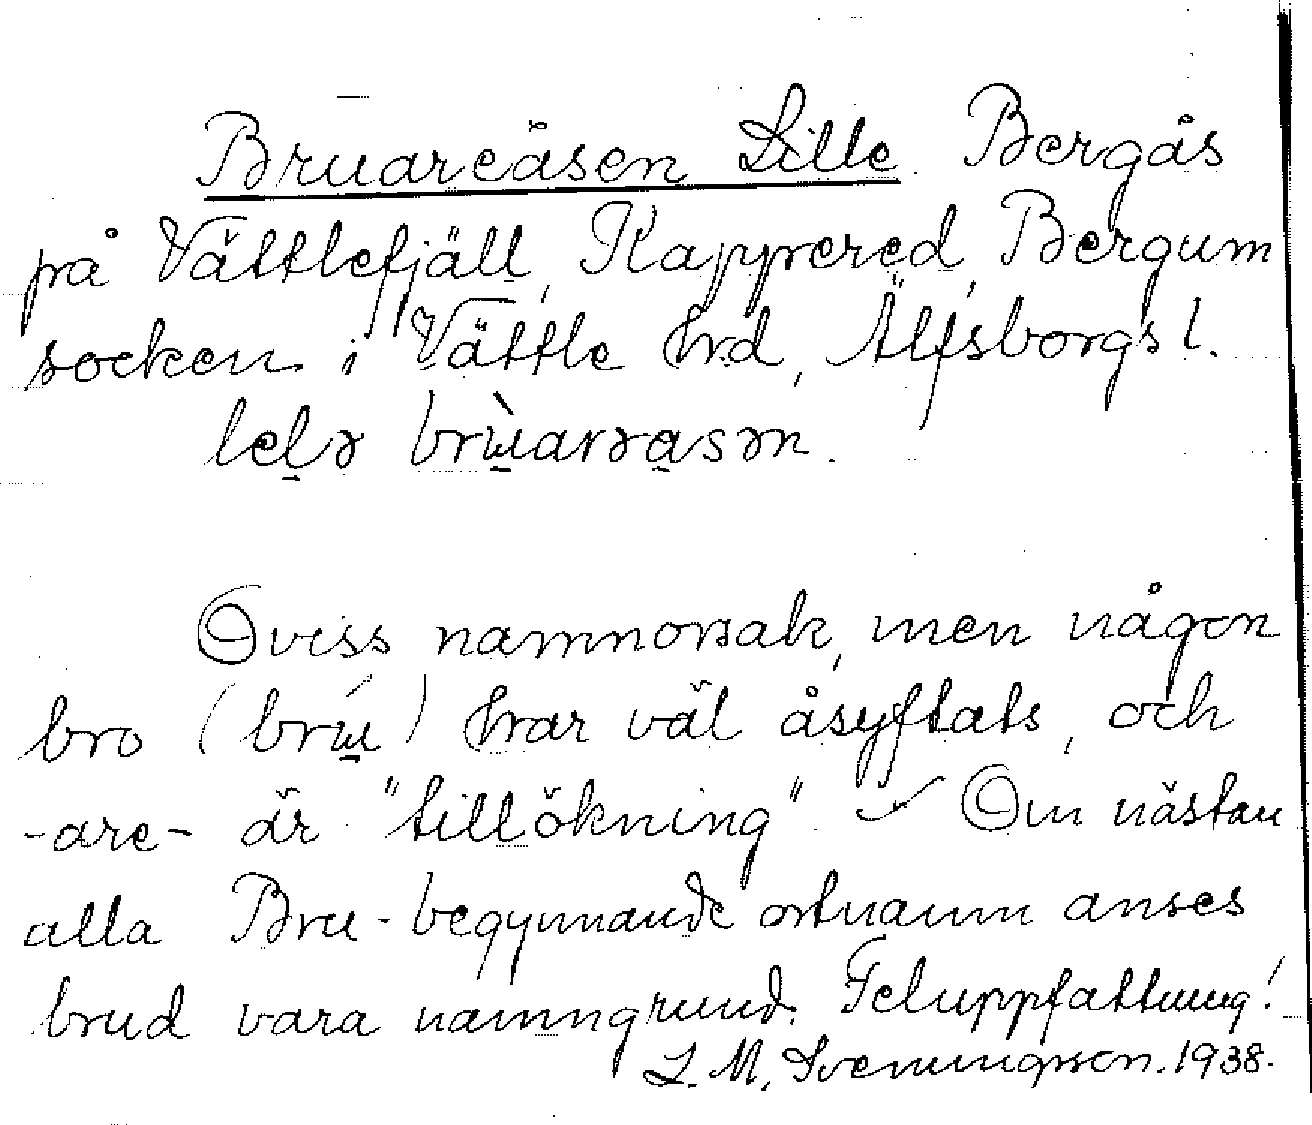 Bruareåsen Lille. Bergås
på Vättlefjäll, Kappered, Bergum
socken i Vättle hrd, Älfsborgs l.
lelə brùarəasən.
Oviss namnorsak, men någon
bro (brú) har väl åsyftats, och
-are- är "tillökning" - Om nästan
alla Bru-begynnande ortnamn anses
brud vara namngrund. Feluppfattning!
L. M. Svenungsson. 1938.